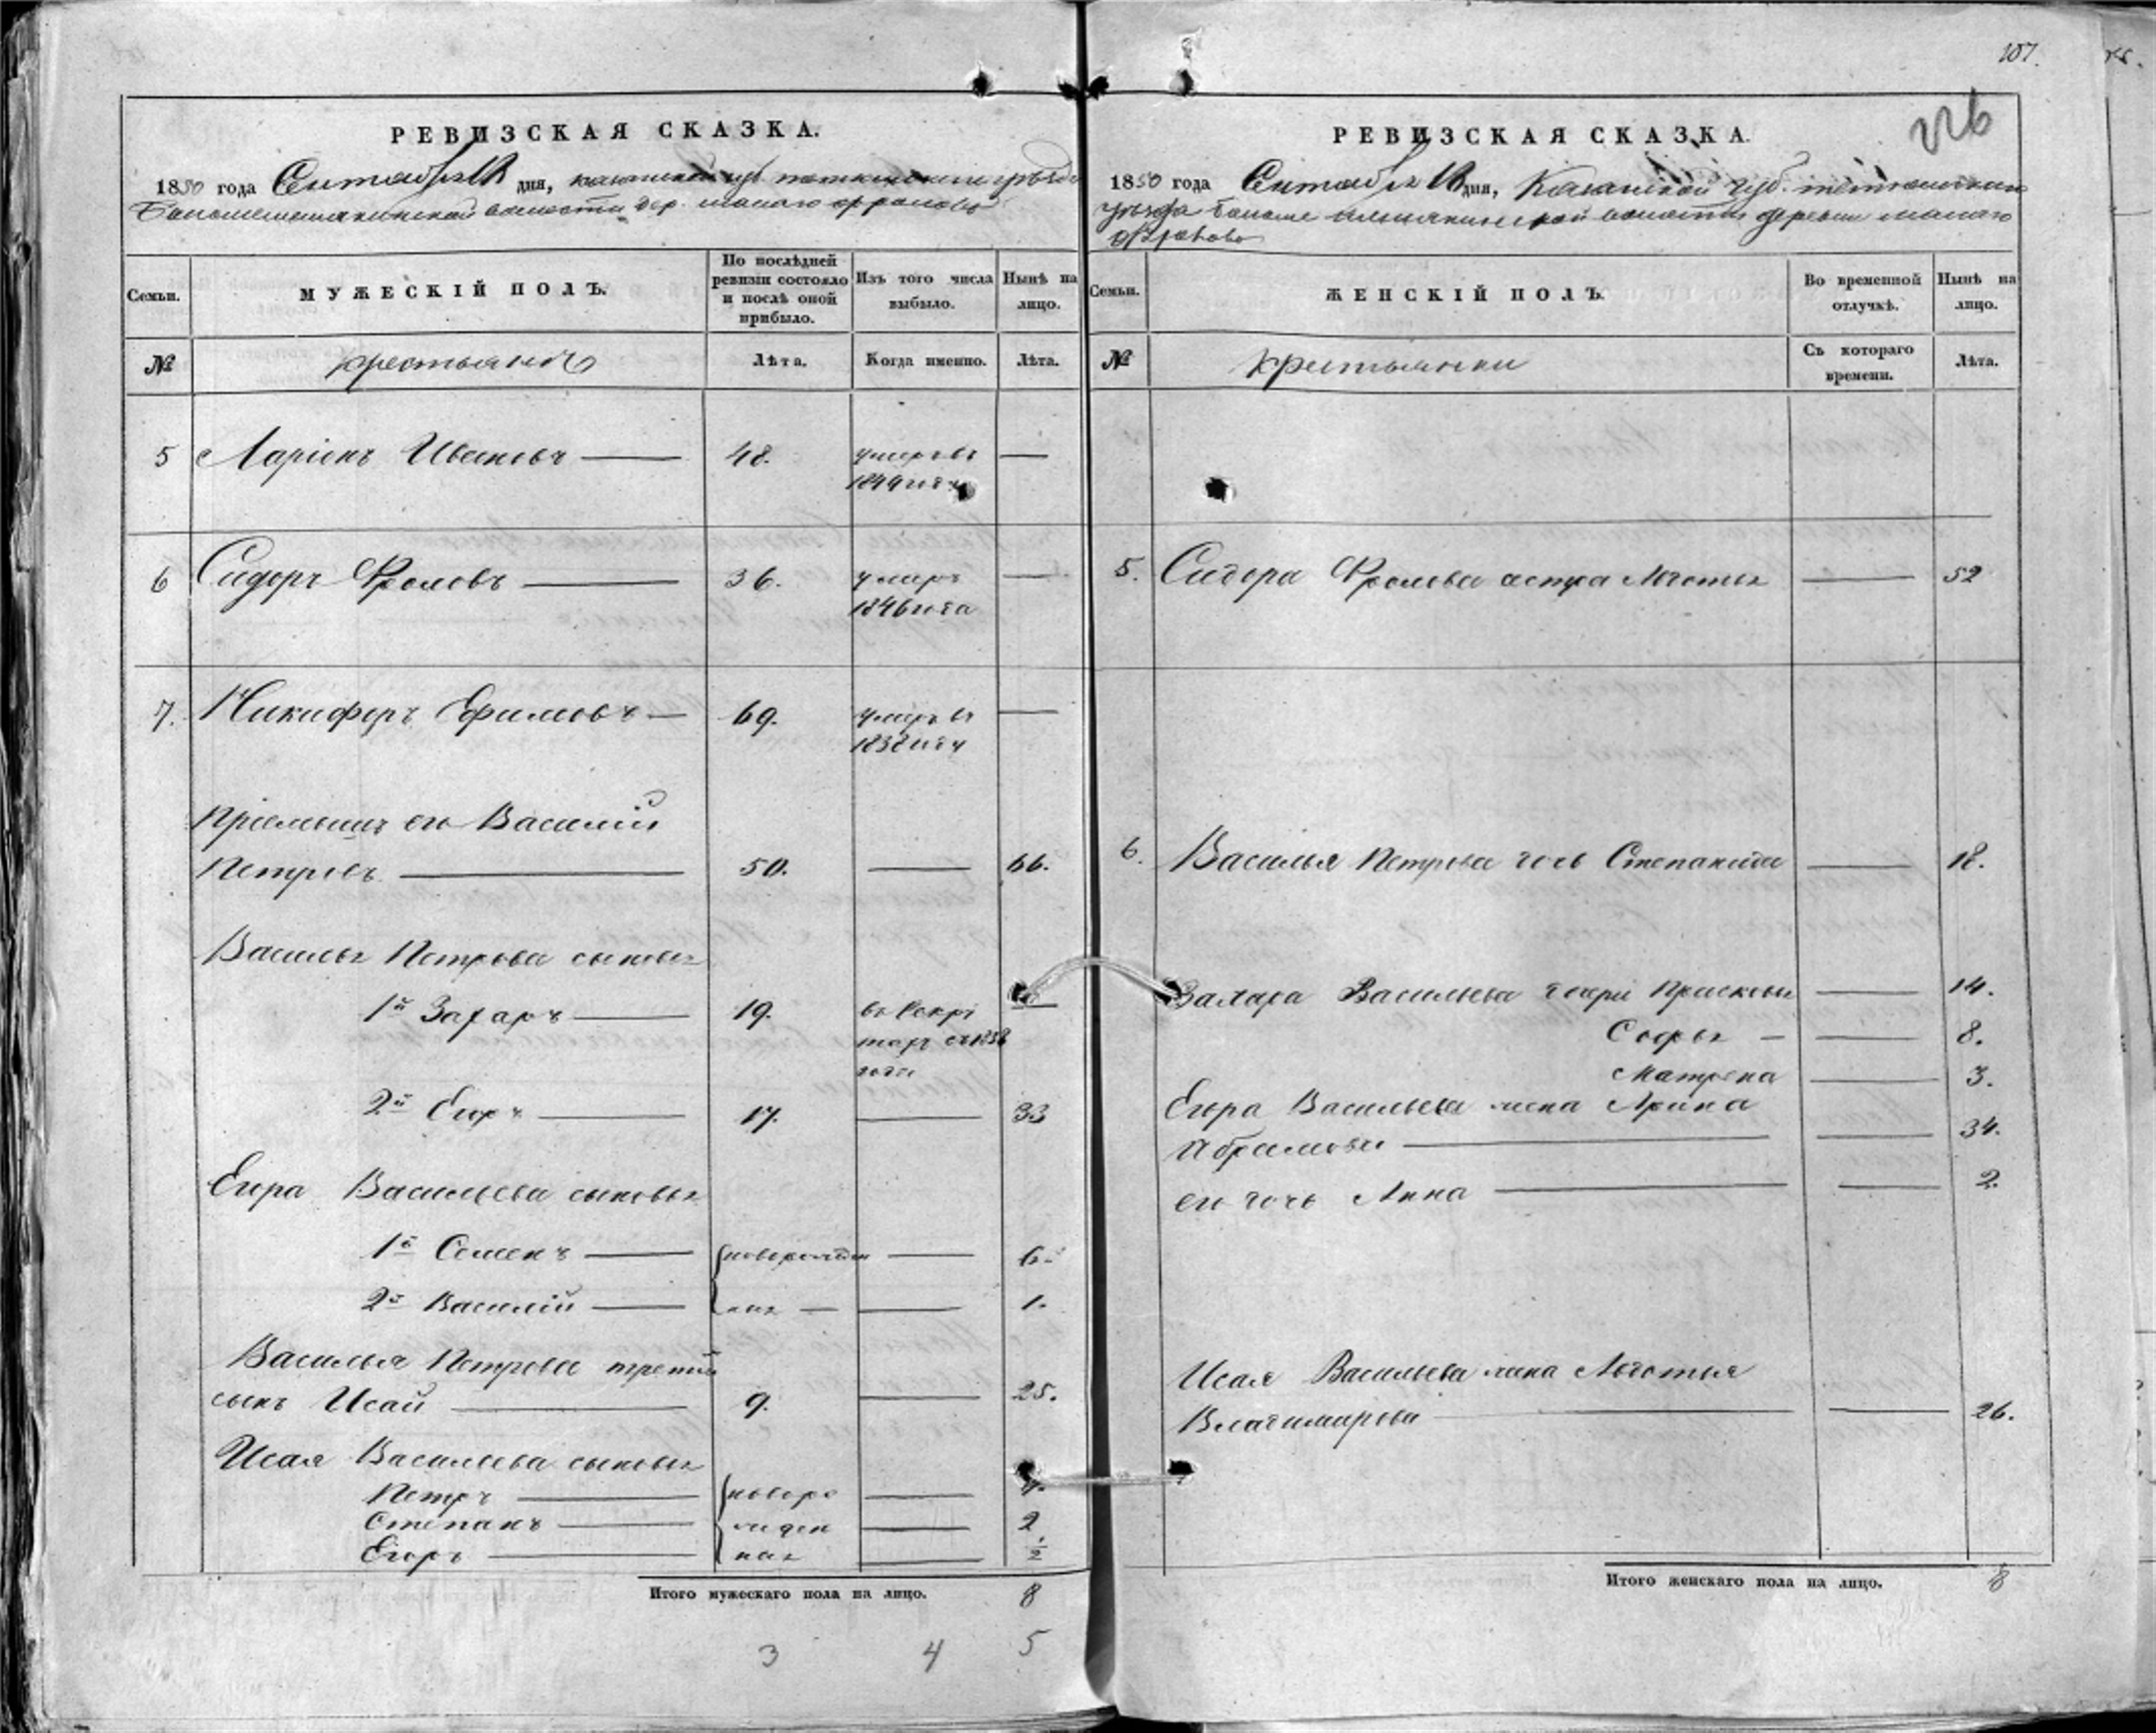 107.
226
РЕВИЗСКАЯ СКАЗКА.
1850 года Сентября дня, казанской губ. тетюшскаго уѣзда
волости дер. малаго
Семьи.
МУЖЕСКІЙ ПОЛЪ.
По послѣдней ревизіи состояло и послѣ оной прибыло.
Изъ того числа выбыло.
Нынѣ на лицо.
№
крестьянъ
Лѣта.
Когда именно.
Лѣта.
5 Ларіонъ Ивановъ — 48. умеръ въ —
1849 году
6 Сидоръ Фроловъ — 36. умеръ —
1846 года
7. Никифоръ Ефимовъ — 69. умеръ въ —
1838 году
Пріемышъ его Василій
Петровъ — 50. — 66.
Василья Петрова сыновья
1й Захаръ — 19. въ рекру —
тахъ съ 1838
года
2й Егоръ — 17. — 33
Егора Васильева сыновья
1й Семенъ — новорожден — 6.
2й Василій — ныя — — 1.
Василья Петрова третій
сынъ Исай — 9. — 25.
Исая Васильева сыновья
Петръ — новоро — 4.
Степанъ — жден — 2
Егоръ — ныя — ½
Итого мужескаго пола на лицо. 8
3 4 5
РЕВИЗСКАЯ СКАЗКА.
1850 года Сентября дня, Казанской губ. тетюшскаго
уѣзда волости деревни малаго
Семьи.
ЖЕНСКІЙ ПОЛЪ.
Во временной отлучкѣ.
Нынѣ на лицо.
№
крестьянки
Съ котораго времени.
Лѣта.
5. Сидора Фролова сестра — 52
6. Василья Петрова дочь Степанида — 18.
Захара Васильева дочери Прасковья — 14.
Софья — — 8.
Матрена — 3.
Егора Васильева жена Арина
Абрамова — — 34.
его дочь Анна — — 2.
Исая Васильева жена
Владимирова — — 26.
Итого женскаго пола на лицо. 8